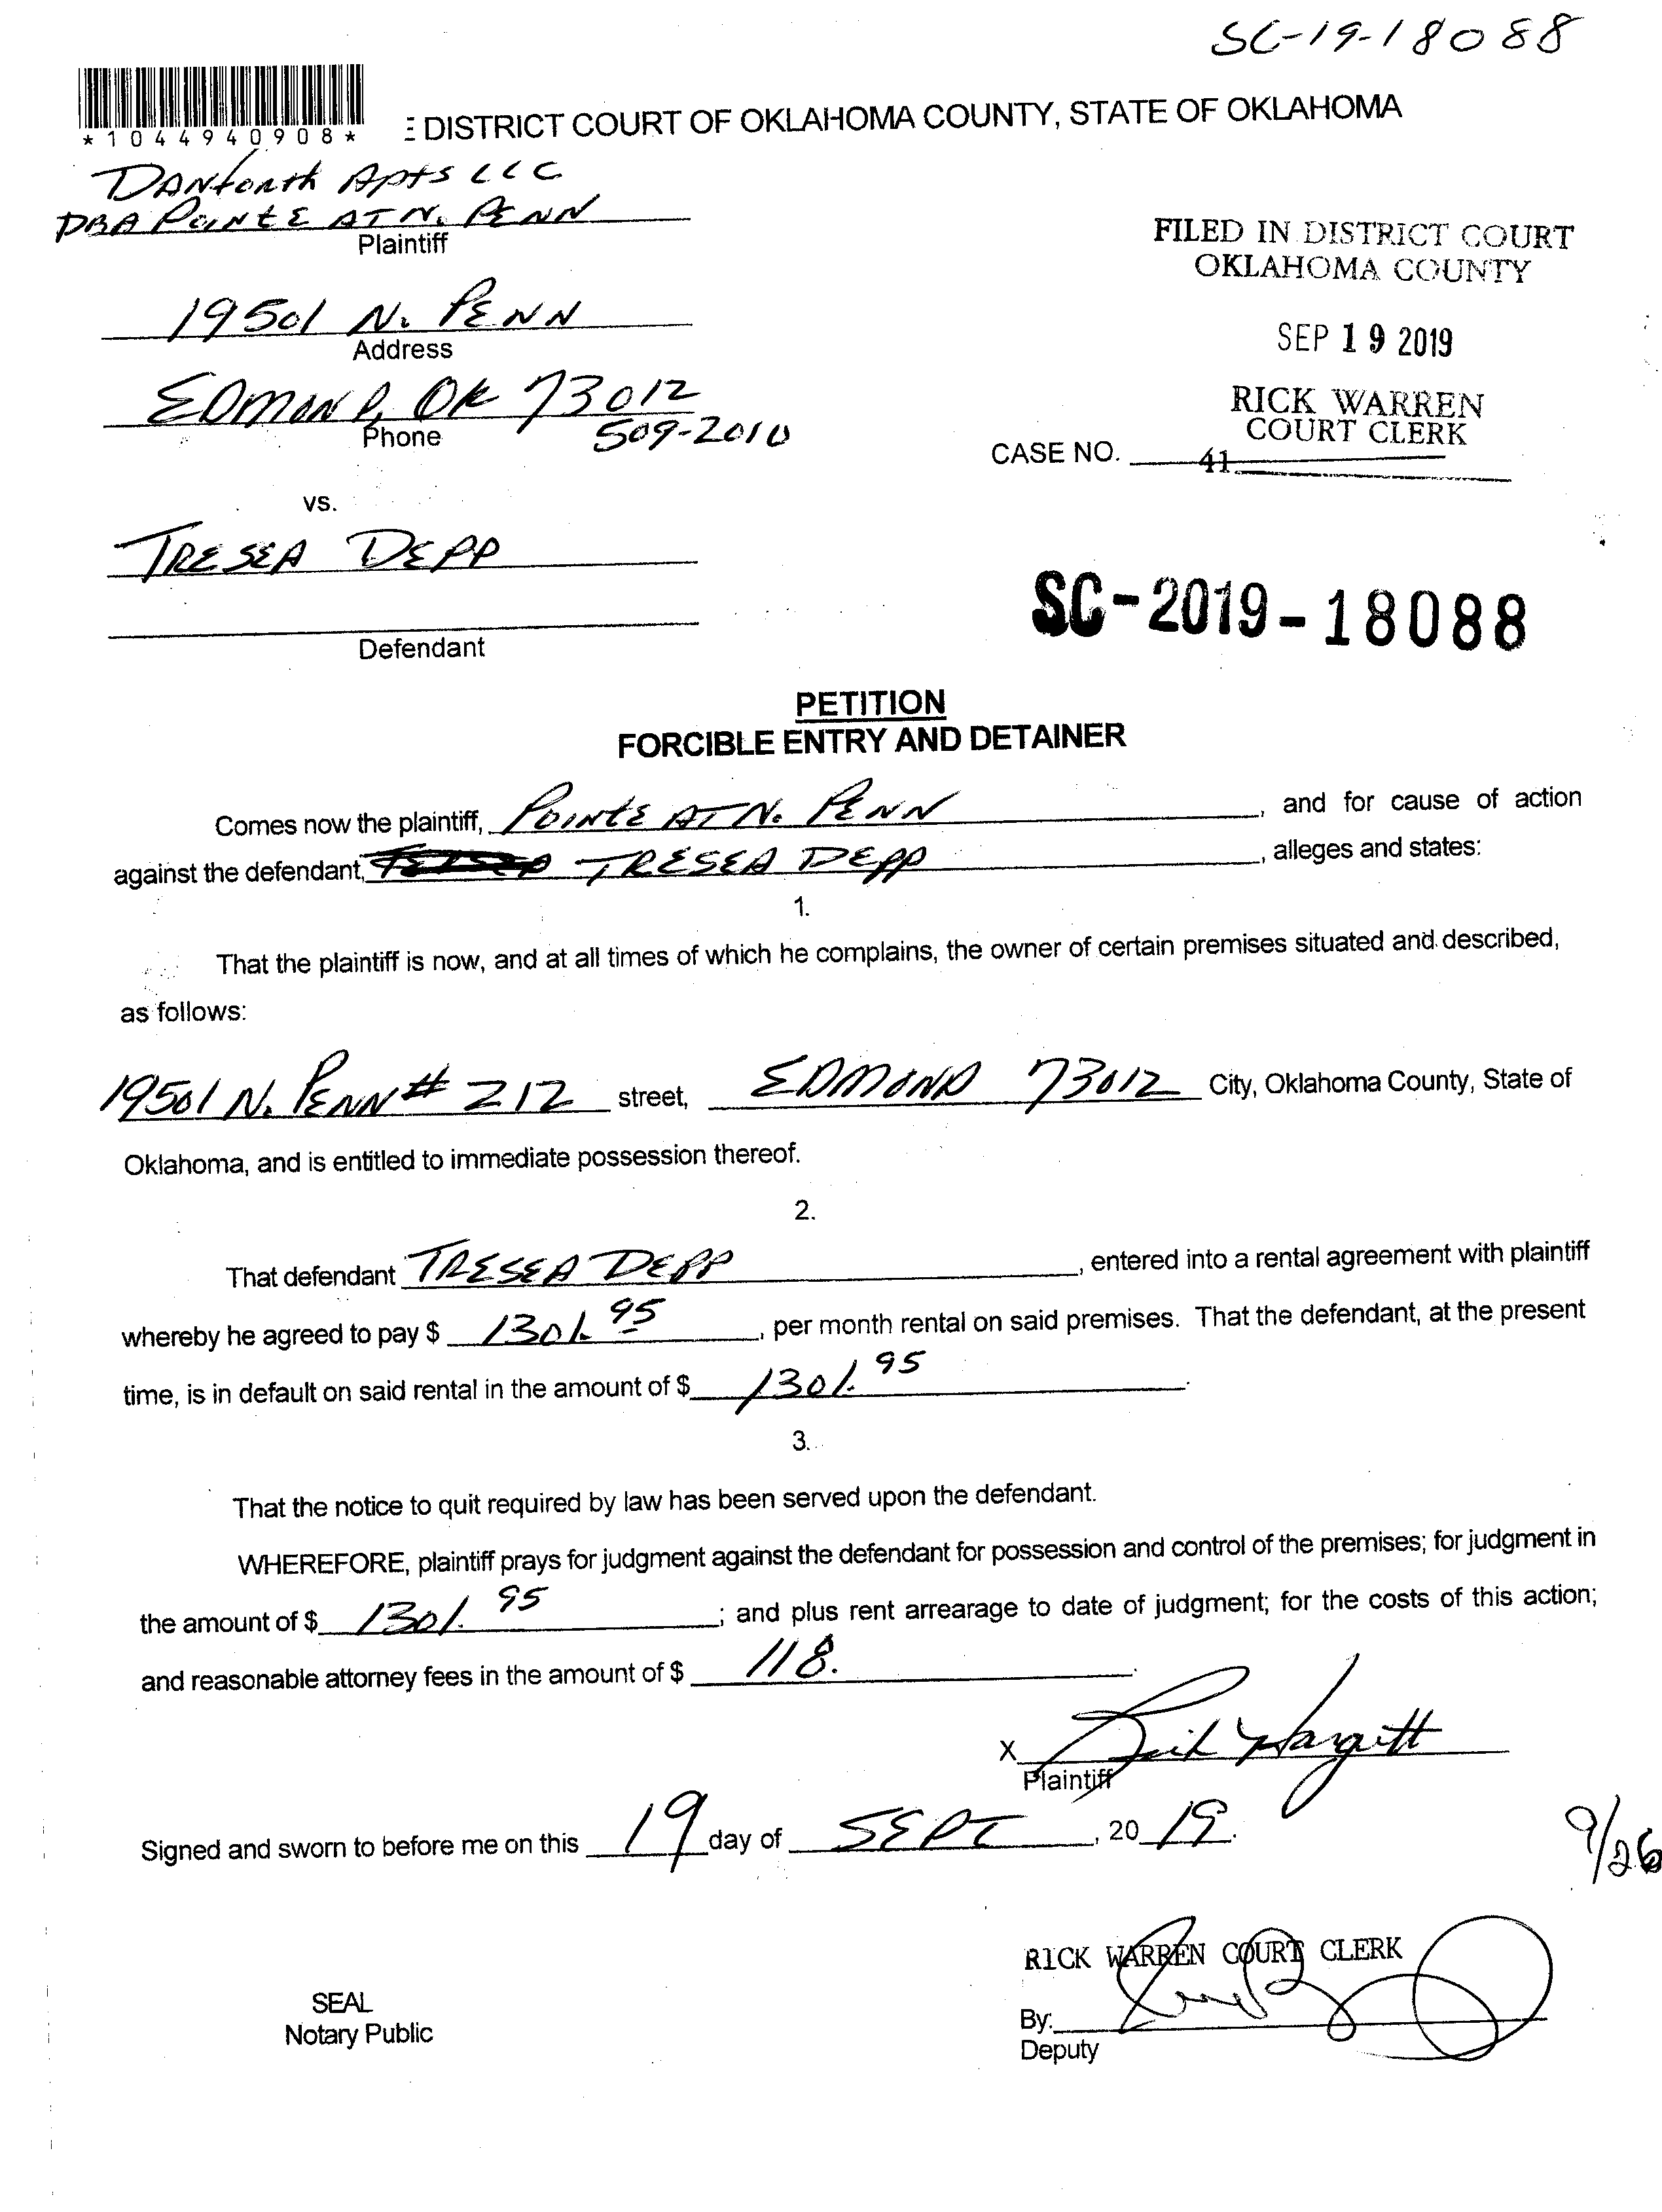 SC-19-18088
*1044940908*
E DISTRICT COURT OF OKLAHOMA COUNTY, STATE OF OKLAHOMA
DANforth Apts LLC
DBA PointE AT N. PENN
Plaintiff
FILED IN DISTRICT COURT
OKLAHOMA COUNTY
19501 N. PENN
Address
SEP 19 2019
EDMOND, OK 73012
RICK WARREN
COURT CLERK
Phone 509-2010
CASE NO. 41
vs.
TRESEA DEPP
SC-2019-18088
Defendant
PETITION
FORCIBLE ENTRY AND DETAINER
Comes now the plaintiff, POINTE AT N. PENN, and for cause of action
against the defendant, TRESEA DEPP, alleges and states:
1.
That the plaintiff is now, and at all times of which he complains, the owner of certain premises situated and described,
as follows:
19501 N. PENN # 212 street, EDMOND 73012 City, Oklahoma County, State of
Oklahoma, and is entitled to immediate possession thereof.
2.
That defendant TRESEA DEPP, entered into a rental agreement with plaintiff
whereby he agreed to pay $ 1301.95, per month rental on said premises. That the defendant, at the present
time, is in default on said rental in the amount of $ 1301.95.
3.
That the notice to quit required by law has been served upon the defendant.
WHEREFORE, plaintiff prays for judgment against the defendant for possession and control of the premises; for judgment in
the amount of $ 1301.95; and plus rent arrearage to date of judgment; for the costs of this action;
and reasonable attorney fees in the amount of $ 118.
X Hargett
Plaintiff
Signed and sworn to before me on this 19 day of SEPT, 2019.
9/26
RICK WARREN COURT CLERK
SEAL
Notary Public
By:
Deputy